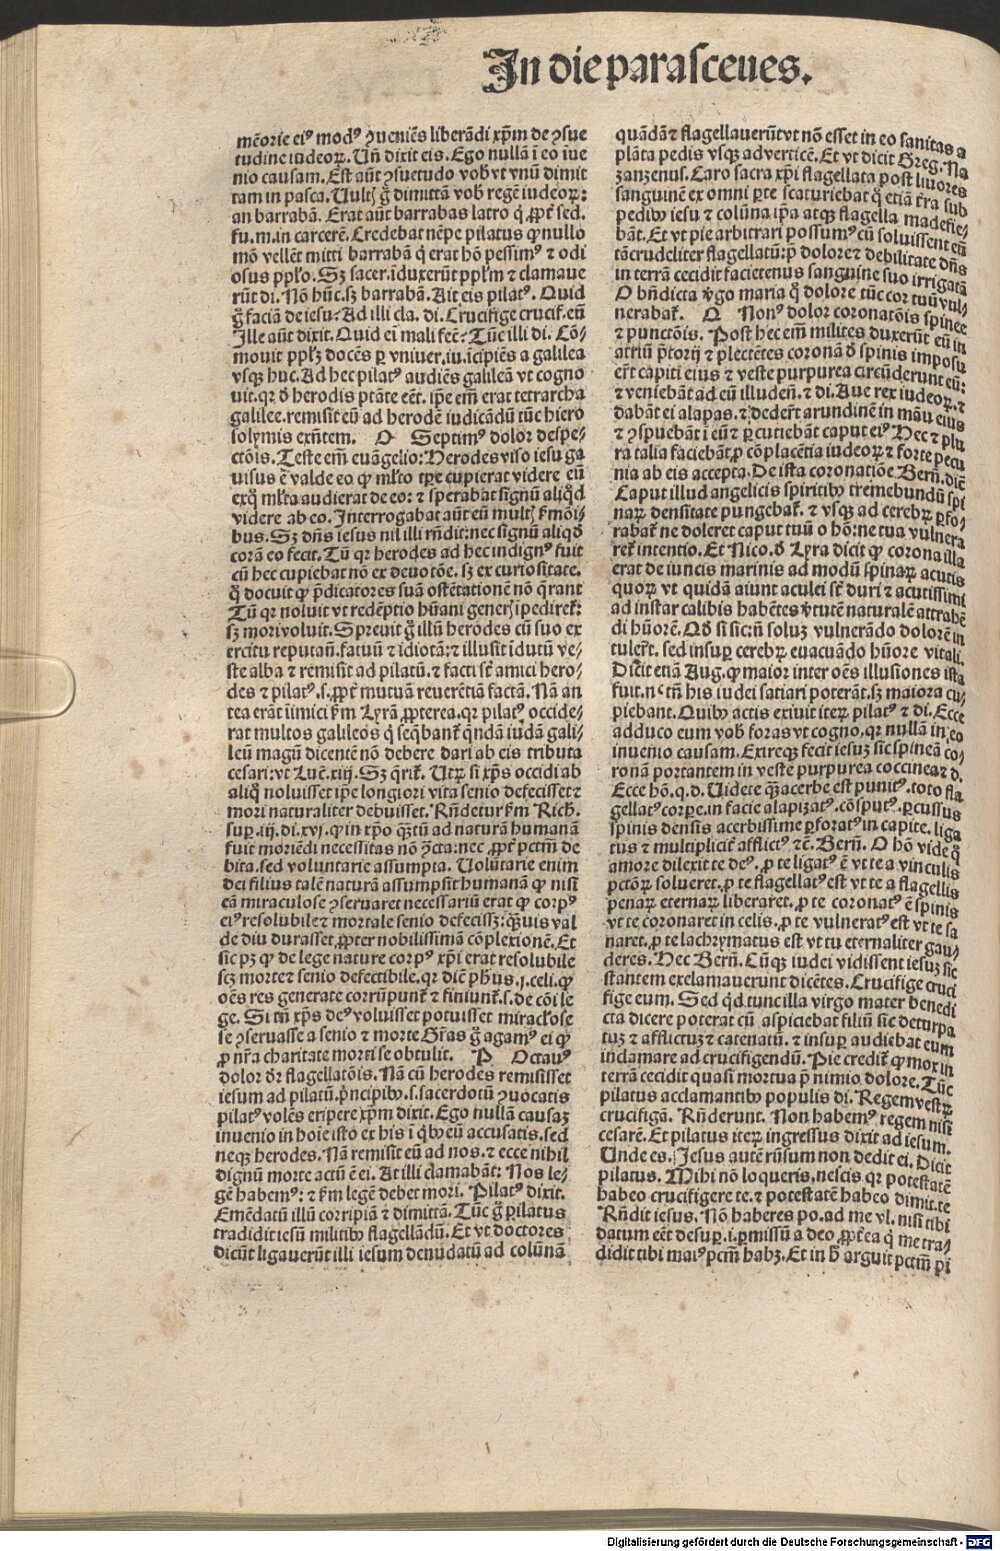 In die parasceues.
mēorie ei⁹ mod⁹ ꝯueniēs liberādi xp̄m de ꝯsue
tudine iudeoꝝ. Uñ dixit eis. Ego nullā ī eo īue
nio causam. Est aūt ꝯsuetudo vob̄ vt vnū dimit
tam in pasca. Uultꝭ ḡ dimittā vob̄ regē iudeoꝝ:
an barrabā. Erat aūt barrabas latro q̄ ꝓpt̄ sed.
fu. m. in carcerē. Credebat nēpe pilatus ꝙ nullo
mō vellēt mitti barrabā q̄ erat hō pessim⁹ ⁊ odi
osus pp̄lo. Sꝫ sacer. īduxerūt pp̄lm ⁊ clamaue
rūt di. Nō hūc. sꝫ barrabā. Ait eis pilat⁹. Quid
ḡ faciā de iesu? Ad illi cla. di. Crucifige crucif. eū
Ille aūt dixit. Quid eī mali fec̄? Tūc illi di. Cō-
mouit pp̄lꝫ docēs ꝑ vniuer. iu. īcipiēs a galilea
vsqꝫ huc. Ad hec pilat⁹ audiēs galileā vt cogno
uit. qꝛ d̄ herodis ptāte eēt. ip̄e em̄ erat tetrarcha
galilee. remisit eū ad herodē iudicādū tūc hiero
solymis exn̄tem. O Septim⁹ dolor despe-
ctōis. Teste em̄ euāgelio: Herodes viso iesu ga
uisus ē valde eo ꝙ ml̄to tp̄e cupierat videre eū
exq̄ ml̄ta audierat de eo: ⁊ sperabat signū aliqd̄
videre ab eo. Interrogabat aūt eū multꝭ ẜmōi-
bus. Sꝫ dn̄s iesus nil illi rn̄dit: nec signū aliqd̄
corā eo fecit. Tū qꝛ herodes ad hec indign⁹ fuit
cū hec cupiebat nō ex deuotōe. sꝫ ex curiositate.
q̄ docuit ꝙ p̄dicatores suā ostētationē nō q̄rant
Tū qꝛ noluit vt redēptio hūani generꝭ īpediret̄:
sꝫ mori voluit. Spreuit ḡ illū herodes cū suo ex
ercitu reputan̄. fatuū ⁊ idiotā: ⁊ illusit īdutū ve-
ste alba ⁊ remisit ad pilatū. ⁊ facti st̄ amici hero-
des ⁊ pilat⁹. s. ꝓpt̄ mutuā reuerētiā factā. Nā an
tea erāt īimici ẜm Lyrā ꝓpterea. qꝛ pilat⁹ occide-
rat multos galileos q̄ seq̄bant̄ q̄ndā iudā gali-
leū magū dicentē nō debere dari ab eis tributa
cesari: vt Luc̄. xiij. Sꝫ q̄rit̄. Utꝝ si xp̄s occidi ab
aliq̄ noluisset ip̄e longiori vita senio defecisset ⁊
mori naturaliter debuisset. Rn̄detur ẜm Rich̄.
suꝑ. iij. di. xvj. ꝙ in xp̄o q̄ꝫtū ad naturā humanā
fuit moriēdi necessitas nō ꝯ̄cta: nec ꝓpt̄ pctm̄ de
bita. sed voluntarie assumpta. Uolūtarie enim
dei filius talē naturā assumpsit humanā ꝙ nisi
eā miraculose ꝯseruaret necessariū erat ꝙ corp⁹
ei⁹ resolubile ⁊ mortale senio defecissꝫ: q̄ꝫuis val
de diu durasset ꝓpter nobilissimā cōplexionē. Et
sic pꝫ ꝙ de lege nature corp⁹ xp̄i erat resolubile
scꝫ morte ⁊ senio defectibile. qꝛ dic̄ ph̄us. j. celi. ꝙ
oēs res generate corrūpunt̄ ⁊ finiunt̄. s. de cōi le
ge. Si tn̄ xp̄s de⁹ voluisset potuisset miracl̄ose
se ꝯseruasse a senio ⁊ morte Gr̄as ḡ agam⁹ ei ꝙ
ꝓ nr̄a charitate morti se obtulit. P Octau⁹
dolor dr̄ flagellatōis. Nā cū herodes remisisset
iesum ad pilatū. p̄ncipibꝰ. s. sacerdotū ꝯuocatis
pilat⁹ volēs eripere xp̄m dixit. Ego nullā causaꝫ
inuenio in hoīe isto ex his ī q̄bꝰ eū accusatis. sed
neqꝫ herodes. Nā remisit eū ad nos. ⁊ ecce nihil
dignū morte actū ē ei. At illi clamabāt: Nos le-
gē habem⁹: ⁊ ẜm legē debet mori. Pilat⁹ dixit.
Emēdatū illū corripiā ⁊ dimittā. Tūc ḡ pilatus
tradidit iesū militibꝰ flagellādū. Et vt doctores
dicūt ligauerūt illi iesum denudatū ad colūnā
quādā ⁊ flagellauerūt vt nō esset in eo sanitas a
plāta pedis vsqꝫ ad verticē. Et vt dicit Greg. Na
zanzenus. Caro sacra xp̄i flagellata post liuores
sanguinē ex omni ꝑte scaturiebat q̄ etiā tr̄a sub
pedibꝰ iesu ⁊ colūna ip̄a atqꝫ flagella madefie-
bāt. Et vt pie arbitrari possum⁹ cū soluissent eū
tā crudeliter flagellatū: p̄ dolore ⁊ debilitate dn̄s
in terrā cecidit facietenus sanguine suo irrigatā
O bn̄dicta v̄go maria q̄ dolore tūc cor tuū vul-
nerabat̄. Q Non⁹ dolor coronatōis spinee
⁊ punctōis. Post hec em̄ milites duxerūt eū in
atriū p̄torij ⁊ plectētes coronā d̄ spinis imposu
er̄t capiti eius ⁊ veste purpurea circūderunt eū:
⁊ veniebāt ad eū illuden̄. ⁊ di. Aue rex iudeoꝝ. ⁊
dabāt ei alapas. ⁊ dedert̄ arundinē in māu eius
⁊ ꝯspuebāt ī eū ⁊ ꝑcutiebāt caput ei⁹ Hec ⁊ plu
ra talia faciebāt ꝓ cōplacētia iudeoꝝ ⁊ forte pecu
nia ab eis accepta. De ista coronatiōe Bern̄. dic̄
Caput illud angelicis spiritibꝰ tremebundū spi
naꝝ densitate pungebat̄. ⁊ vsqꝫ ad cerebꝝ ꝑfo-
rabat̄ ne doleret caput tuū o hō: ne tua vulnera
ret̄ intentio. Et Nico. d̄ Lyra dicit ꝙ corona illa
erat de iuncis marinis ad modū spinaꝝ acutis
quoꝝ vt quidā aiunt aculei st̄ duri ⁊ acutissimi
ad instar calibis habētes v̄tutē naturalē attrahē
di hūorē. Qd̄ si sic: n̄ soluꝫ vulnerādo dolorē in
tulert̄. sed insuꝑ cerebꝝ euacuādo hūore vitali.
Dicit etiā Aug. ꝙ maior inter oēs illusiones ista
fuit. nᶜ tn̄ his iudei satiari poterāt. sꝫ maiora cu
piebant. Quibꝰ actis exiuit iteꝝ pilat⁹ ⁊ di. Ecce
adduco eum vob̄ foras vt cogno. qꝛ nullā in eo
inuenio causam. Exireqꝫ fecit iesuꝫ sic spineā co-
ronā portantem in veste purpurea coccinea ⁊ d.
Ecce hō. q. d. Uidete q̄ꝫ acerbe est punit⁹. toto fla
gellat⁹ corꝑe. in facie alapizat⁹. cōsput⁹. ꝑcussus
spinis densis acerbissime ꝑforat⁹ in capite. liga
tus ⁊ multiplicit̄ afflict⁹ ⁊c̄. Bern̄. O hō vide q̄
amore dilexit te de⁹. ꝓ te ligat⁹ ē vt te a vinculis
pctōꝝ solueret. ꝓ te flagellat⁹ est vt te a flagellis
penaꝝ eternaꝝ liberaret. ꝓ te coronat⁹ ē spinis
vt te coronaret in celis. ꝓ te vulnerat⁹ est vt te sa
naret. ꝓ te lachrymatus est vt tu eternaliter gau-
deres. Hec Bern̄. Cūqꝫ iudei vidissent iesuꝫ sic
stantem exclamauerunt dicētes. Crucifige cruci
fige eum. Sed qd̄ tunc illa virgo mater benedi
cta dicere poterat cū aspiciebat filiū sic deturpa
tuꝫ ⁊ afflictuꝫ ⁊ catenatū. ⁊ insuꝑ audiebat eum
inclamare ad crucifigendū. Pie credit̄ ꝙ mox in
terrā cecidit quasi mortua p̄ nimio dolore. Tūc
pilatus acclamantibꝰ populis di. Regem vestꝝ
crucifigā. Rn̄derunt. Non habem⁹ regem nisi
cesarē. Et pilatus iteꝝ ingressus dixit ad iesum.
Unde es. Jesus autē rūsum non dedit ei. Dicit
pilatus. Mihi nō loqueris. nescis qꝛ potestatē
habeo crucifigere te. ⁊ potestatē habeo dimit. te
Rn̄dit iesus. Nō haberes po. ad me vl. nisi tibi
datum eēt desuꝑ. i. ꝑmissū a deo ꝓpt̄ea q̄ me tra-
didit tibi mai⁹ pctm̄ habꝫ. Et in h̄ arguit pctm̄ pi
Digitalisierung gefördert durch die Deutsche Forschungsgemeinschaft - DFG